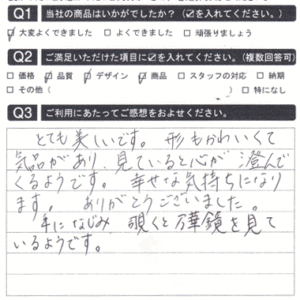 Q1 当社の商品はいかがでしたか?(☑を入れてください。)
☑大変よくできました □よくできました □頑張りましょう
Q2 ご満足いただけた項目に☑を入れてください。(複数回答可)
□価格 ☑品質 ☑デザイン ☑商品 □スタッフの対応 □納期
□その他( ) □特になし
Q3 ご利用にあたってご感想をおよせください。
とても美しいです。形もかわいくて
気品があり、見ていると心が澄んで
くるようです。幸せな気持ちになり
ます。ありがとうございました。
手になじみ 覗くと万華鏡を見て
いるようです。